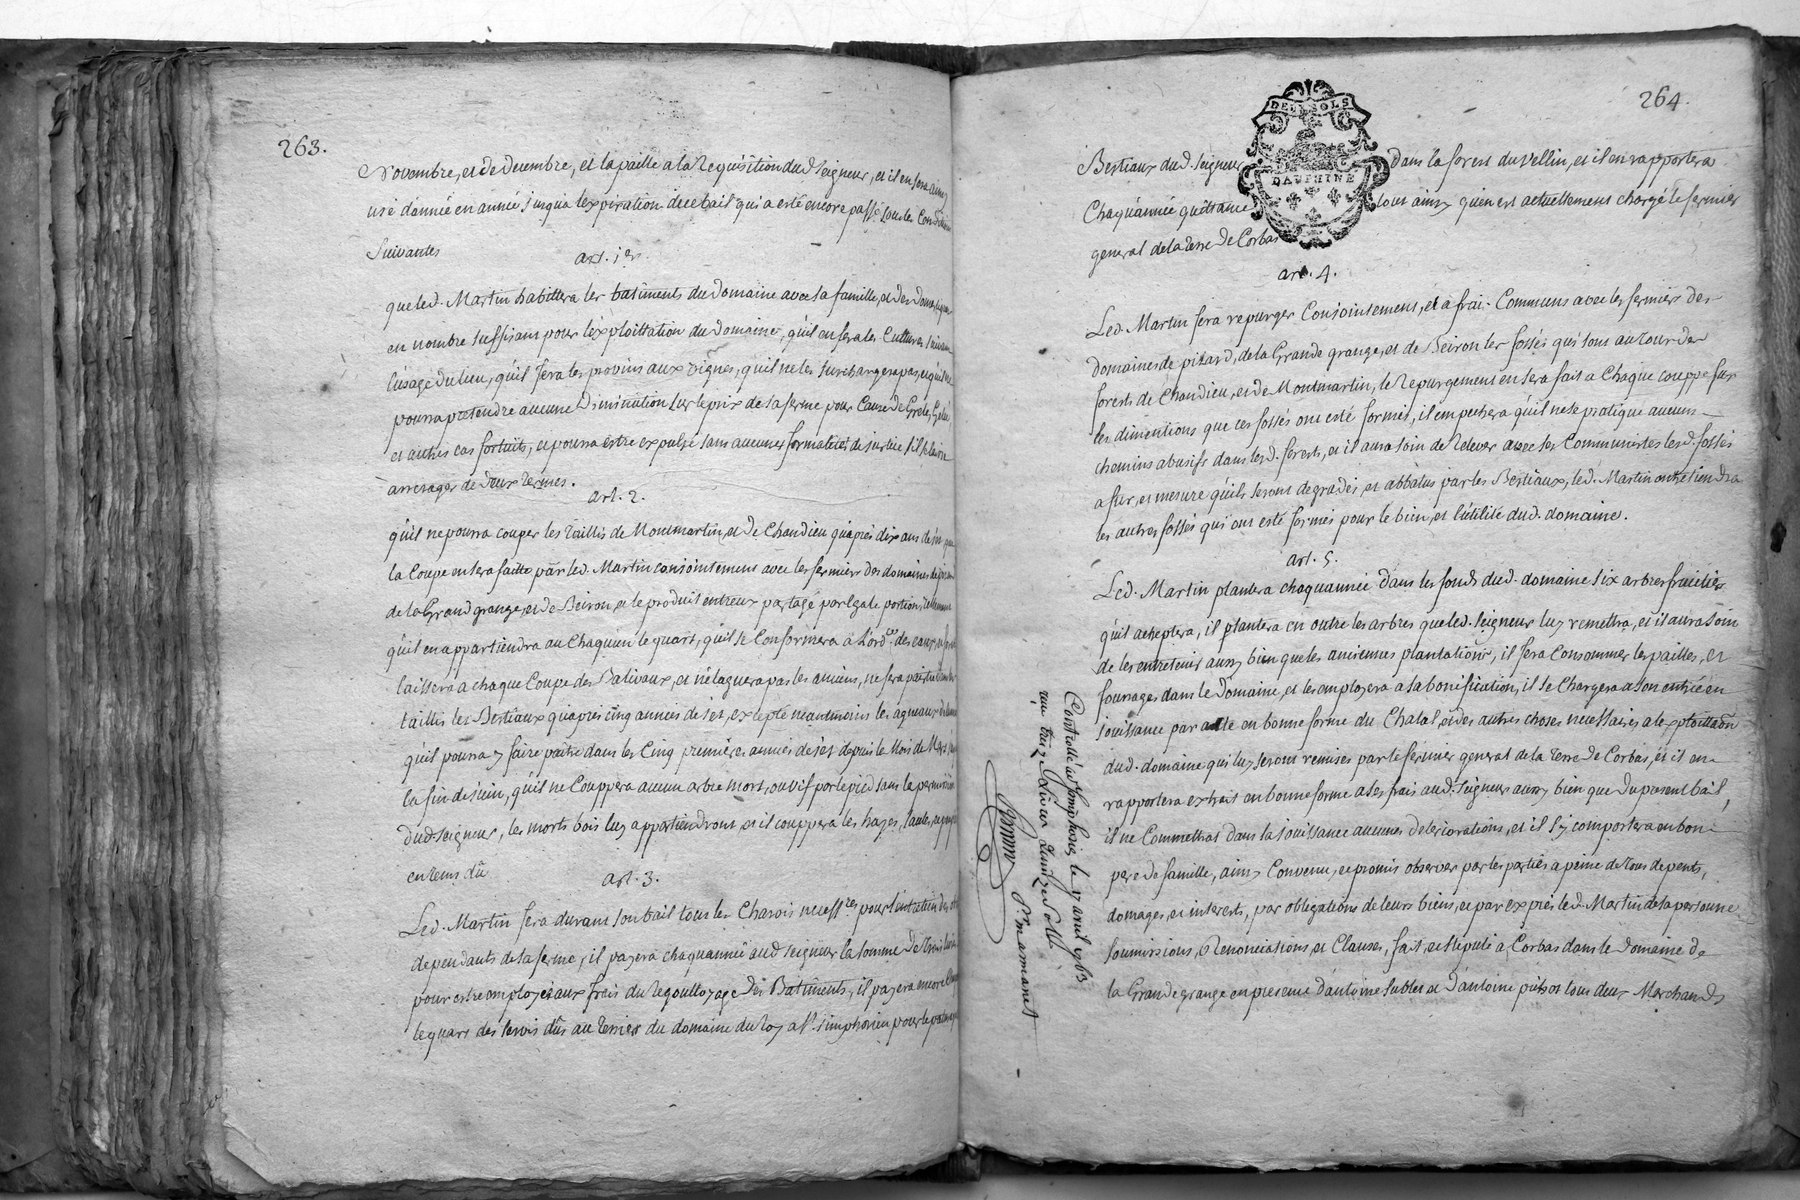 263.
Novembre, et de decembre, et la paille a la Requisition dud. seigneur, et il en sera ainsy
usé d'année en année jusqua lexpiration dice bail qui a esté encore passé sous les Conditions
Suivantes
art. 1er.
que led. Martin habittera les batiments du domaine avec sa famille, et des domestiques
en nombre suffisant pour l'exploittation du domaine, qu'il en fera les Cultures suivant
l'usage du lieu, qu'il fera les provins aux vignes, qu'il ne les surchargera pas, et qu'il ne
pourra pretendre aucune Diminution sur le prix de sa ferme pour Cause de Grele, Gelée
et autres cas fortuits, et pourra estre expulsé sans aucunes formalités de justice s'il se laisse
arrerager de deux termes.
art. 2.
qu'il ne pourra couper les taillis de Montmartin, et de Chandieu qu'après dix ans de
la Coupe en sera faitte par led. Martin conjointement avec les fermiers des domaines de pizard
de la Grand grange, et de Beiron, et le produit entreux partagé par Egale portion, tellement
qu'il en appartiendra au Chaquun le quart, qu'il se Conformera à L'ord.ce des eaux, et
laissera a chaque Coupe des Balivaux, et n'elaguera pas les anciens, ne fera paitre dans les
taillis les Bestiaux qu'apres cinq années de jet, excepté neantmoins les agneaux
qu'il pourra y faire paitre dans les Cinq premières années de jet depuis le Mois de Mars
la fin de juin, qu'il ne Couppera aucun arbre mort, ou vif por le pied sans la permission
dud. seigneur, les morts bois luy appartiendront et il couppera les hayes, saules,
en tems dû
art. 3.
Led. Martin fera durant son bail tous les Charois necess.res pour l'entretien des
dependants de sa ferme, il payera chaquannée aud. seigneur la somme de trois livres
pour estre employée aux frais du Regouttoyage des Batiments, il payera encore
le quart des servis dûs au terrier du domaine du Roy a S.t simphorien pour le paturage
264.
DEUX SOLS
DAUPHINE
Bestiaux dud. seigneur dans la forest du Vellin, et il en rapportera
Chaqu'année quittance tout ainsy quen est actuellement chargé le fermier
general de la terre de Corbas
art. 4.
Led. Martin fera repurger Conjointement, et a frais Communs avec les fermiers des
domaines de pizard, de la Grande grange, et de Beiron les fossés qui sont au tour des
forests de Chandieu, et de Montmartin, le Repurgement en sera fait a Chaque couppe sur
les dimentions que ces fossés ont esté formés, il empechera qu'il ne se pratique aucuns
chemins abusifs dans lesd. forests, et il aura soin de Relever avec ses Communistes lesd. fossés
a fur, et mesure qu'ils seront degradés et abbatus par les Bestiaux, led. Martin entretiendra
les autres fossés qui ont esté formés pour le bien, et l'utilité dud. domaine.
art. 5.
Led. Martin plantera chaquannée dans les fonds dud. domaine six arbres fruitiers
qu'il acheptera, il plantera en outre les arbres que led. seigneur luy remettra, et il aura soin
de les entretenir aussy bien que les anciennes plantations, il fera Consommer les pailles, et
fourrages dans le domaine, et les employera a sa bonification, il se Chargera a son entrée en
jouissance par acte en bonne forme du Chatal, et des autres choses necessaires a lexploittaôn
dud. domaine qui luy seront remises par le fermier general de la terre de Corbas, et il en
rapportera extrait en bonne forme a ses frais aud. seigneur aussy bien que du present bail,
il ne Commettras dans la jouissance aucunes deteriorations, et il s'y comportera en bon
pere de famille, ainsy Convenu, et promis observer par les parties a peine de tous depents,
domages, et interests, par obligations de leurs biens, et par exprès led. Martin de sa personne
soumissions, Renonciations, et Clauses, fait, et stipulé a Corbas dans le domaine de
la Grande grange en presence d'antoine sublet et d'antoine tous deux Marchands
Controllé a St simphorien le 17 avril 1763
reçu treize Livres quinze Sols